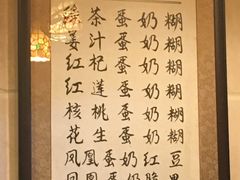 茶蛋奶糊
姜汁蛋奶糊
红杞蛋奶糊
红莲蛋奶糊
核桃蛋奶糊
花生蛋奶糊
凤凰蛋奶红豆
凰蛋奶